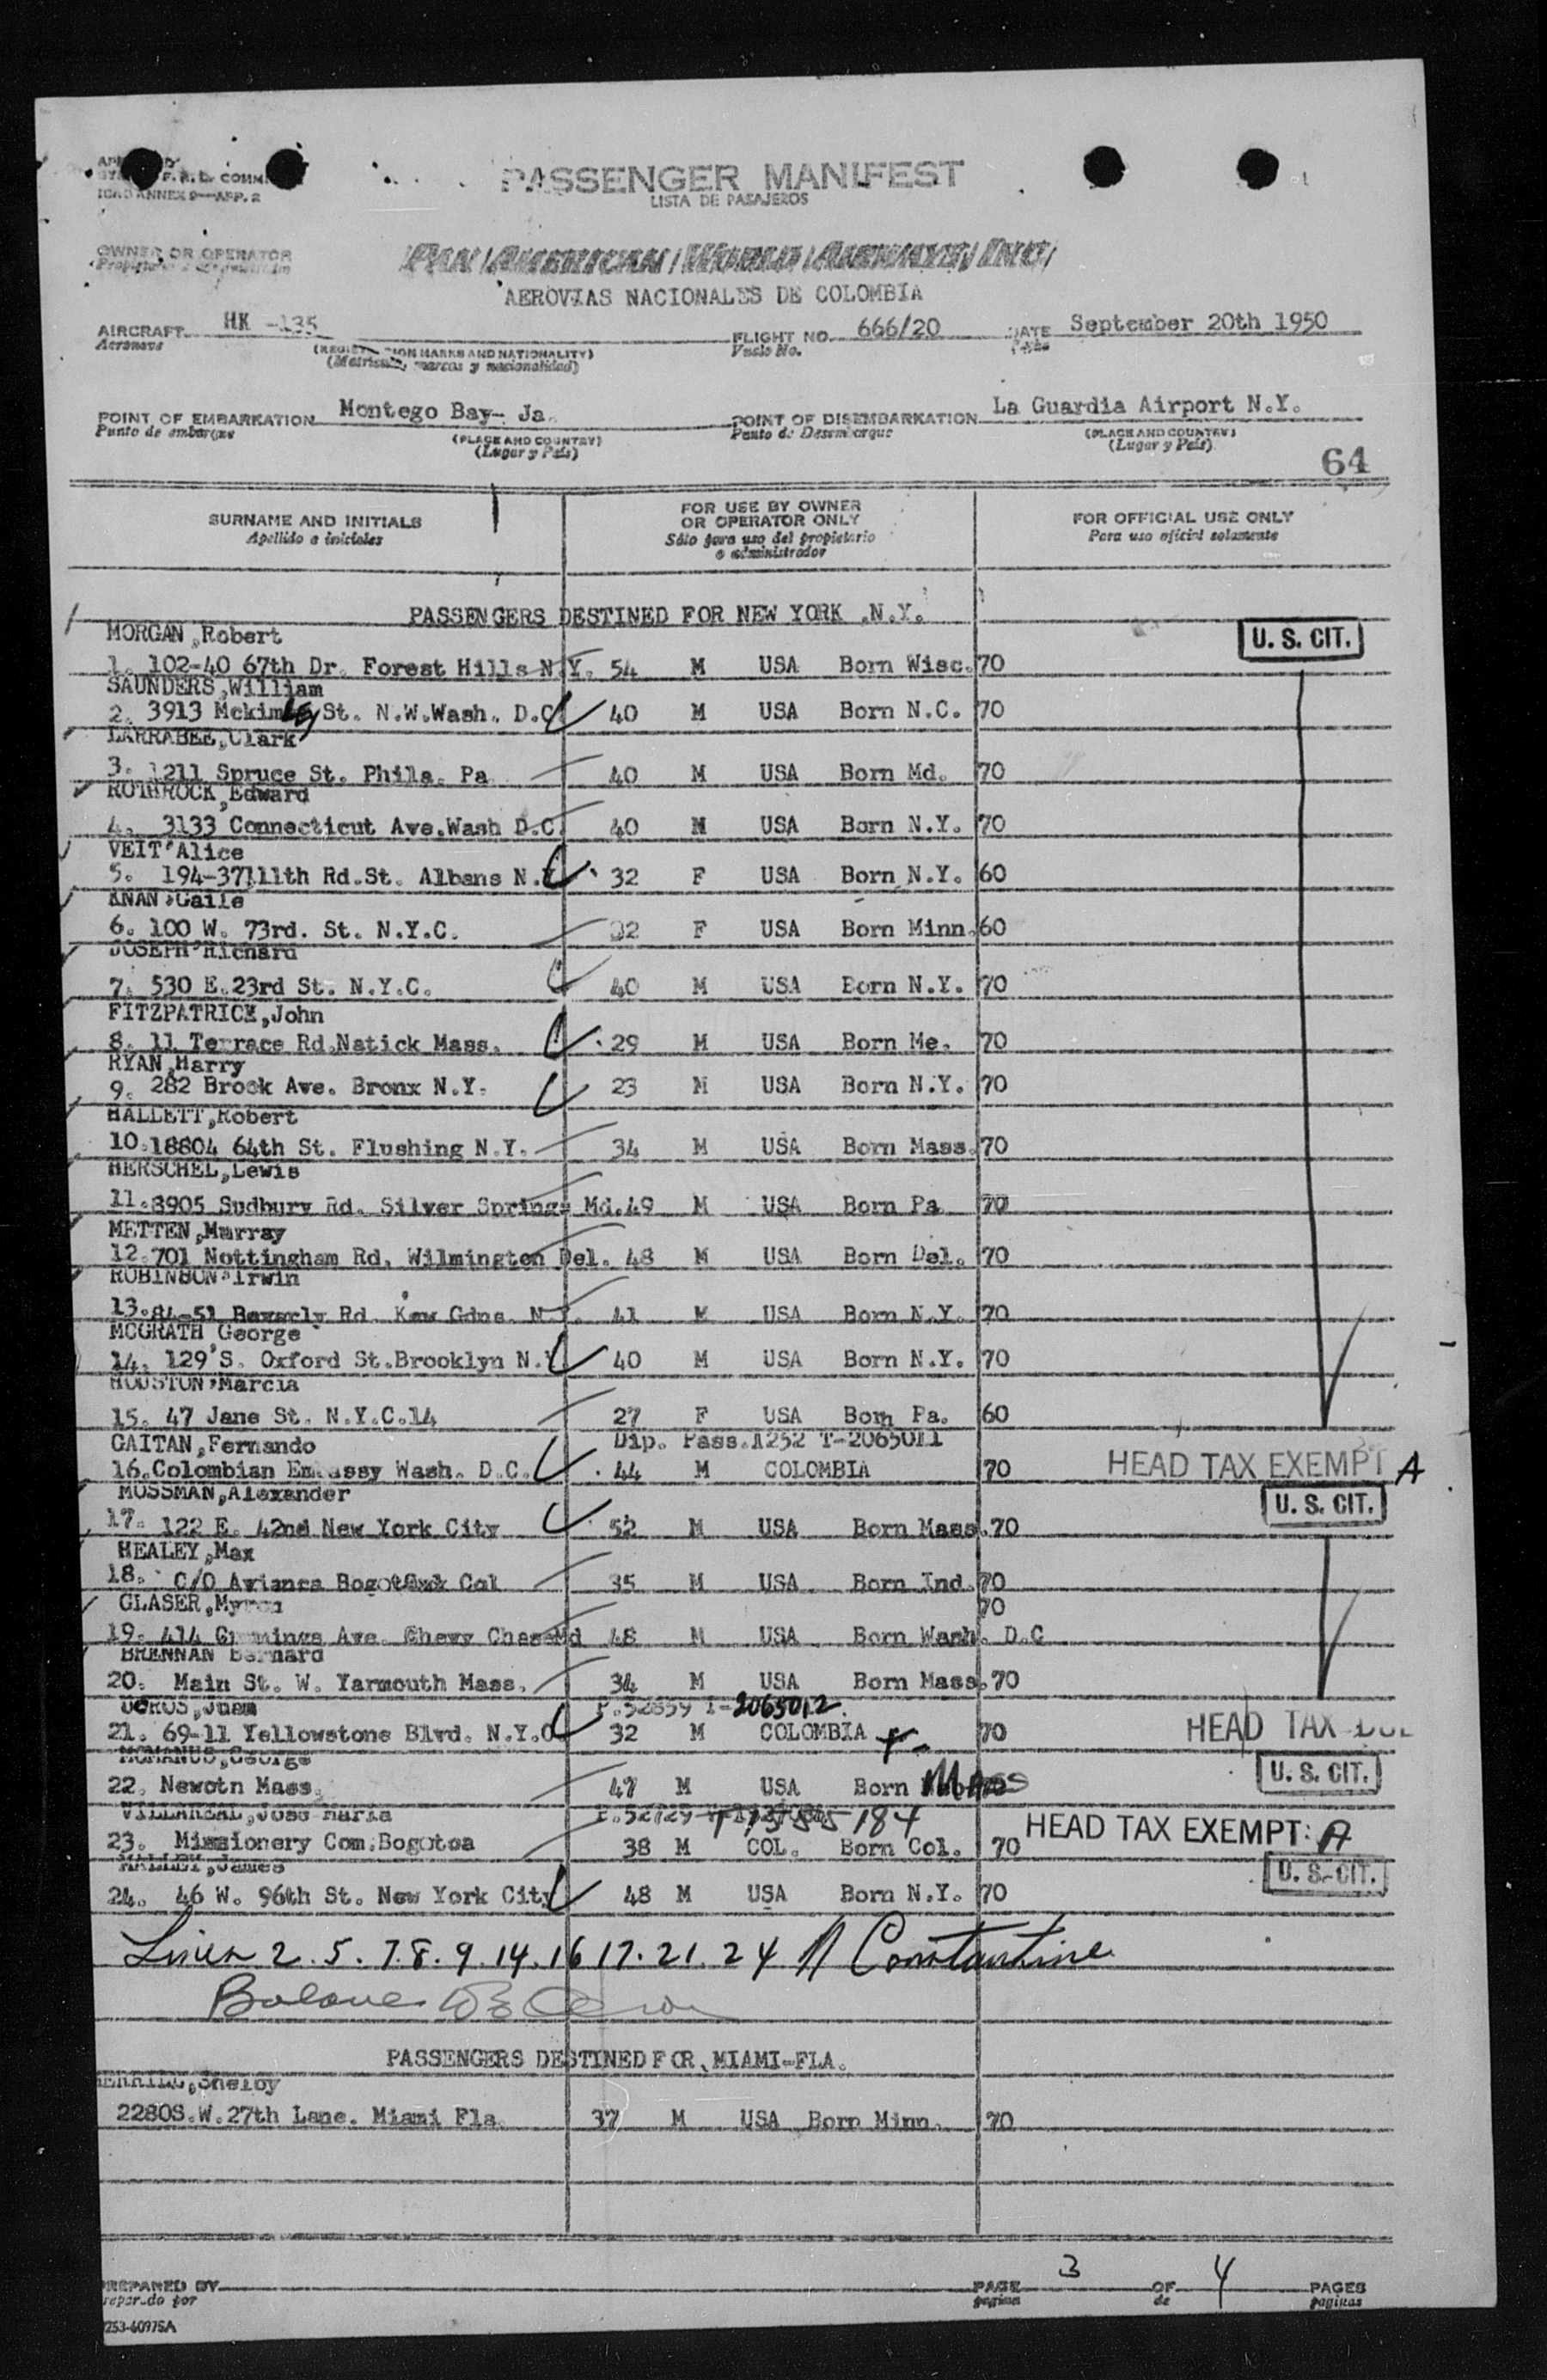 PASSENGER MANIFEST
LISTA DE PASAJEROS
ICAO ANNEX 9—APP. 2
OWNER OR OPERATOR
PAN AMERICAN WORLD AIRWAYS, INC.
AEROVIAS NACIONALES DE COLOMBIA
AIRCRAFT HK -135 FLIGHT NO. 666/20 DATE September 20th 1950
Aeronave (REGISTRATION MARKS AND NATIONALITY) Vuelo No. Fecha
(Matricula, marcas y nacionalidad)
POINT OF EMBARKATION Montego Bay- Ja. POINT OF DISEMBARKATION La Guardia Airport N.Y.
Punto de embarque (PLACE AND COUNTRY) Punto de Desembarque (PLACE AND COUNTRY)
(Lugar y Pais) (Lugar y Pais)
64
SURNAME AND INITIALS FOR USE BY OWNER OR OPERATOR ONLY FOR OFFICIAL USE ONLY
Apellido e iniciales Sólo para uso del propietario o administrador Para uso oficial solamente
PASSENGERS DESTINED FOR NEW YORK ,N.Y.
MORGAN,Robert U. S. CIT.
1. 102-40 67th Dr. Forest Hills N.Y. 54 M USA Born Wisc. 70
SAUNDERS,William
2. 3913 Mckinley St. N.W.Wash. D.C. 40 M USA Born N.C. 70
LARRABEE,Clark
3. 1211 Spruce St. Phila. Pa 40 M USA Born Md. 70
ROTHROCK,Edward
4. 3133 Connecticut Ave.Wash D.C. 40 M USA Born N.Y. 70
VEIT,Alice
5. 194-37111th Rd.St. Albans N.Y. 32 F USA Born N.Y. 60
KNAN,Gaile
6. 100 W. 73rd. St. N.Y.C. 32 F USA Born Minn. 60
JOSEPH,Richard
7. 530 E.23rd St. N.Y.C. 40 M USA Born N.Y. 70
FITZPATRICK,John
8. 11 Terrace Rd.Natick Mass. 29 M USA Born Me. 70
RYAN,Harry
9. 282 Brook Ave. Bronx N.Y. 23 M USA Born N.Y. 70
HALLETT,Robert
10.18804 64th St. Flushing N.Y. 34 M USA Born Mass. 70
HERSCHEL,Lewis
11.8905 Sudbury Rd. Silver Springs Md.49 M USA Born Pa 70
METTEN,Murray
12.701 Nottingham Rd. Wilmington Del. 48 M USA Born Del. 70
ROBINSON,Irwin
13.84-51 Beverly Rd. Kew Gdns. N.Y. 41 M USA Born N.Y. 70
MCGRATH George
14. 129 S. Oxford St.Brooklyn N.Y. 40 M USA Born N.Y. 70
HOUSTON,Marcia
15. 47 Jane St. N.Y.C.14 27 F USA Born Pa. 60
GAITAN,Fernando Dip. Pass.1252 T-2065011
16.Colombian Embassy Wash. D.C. 44 M COLOMBIA 70 HEAD TAX EXEMPT A
MOSSMAN,Alexander U. S. CIT.
17. 122 E. 42nd New York City 52 M USA Born Mass. 70
HEALEY,Max
18. C/O Avianca Bogota Col 35 M USA Born Ind. 70
GLASER,Myron 70
19. 414 Cummings Ave. Chevy Chase Md 48 M USA Born Wash. D.C
BRENNAN Bernard
20. Main St. W. Yarmouth Mass. 34 M USA Born Mass. 70
Juan P.52859 T-2065012
21. 69-11 Yellowstone Blvd. N.Y.C 32 M COLOMBIA 70 HEAD TAX DUE
MCMANUS,George U. S. CIT.
22. Newotn Mass. 47 M USA Born Mass
VILLAREAL,Jose Maria 184
23. Missionery Com.Bogotoa 38 M COL. Born Col. 70 HEAD TAX EXEMPT: A
James U. S. CIT.
24. 46 W. 96th St. New York City 48 M USA Born N.Y. 70
Lines 2. 5. 7. 8. 9. 14. 16 17. 21. 24 Constantine
Balance
PASSENGERS DESTINED FOR, MIAMI-FLA.
Shelby
2280S.W.27th Lane. Miami Fla. 37 M USA Born Minn. 70
PREPARED BY PAGE 3 OF 4 PAGES
Preparado por pagina de paginas
253-60975A